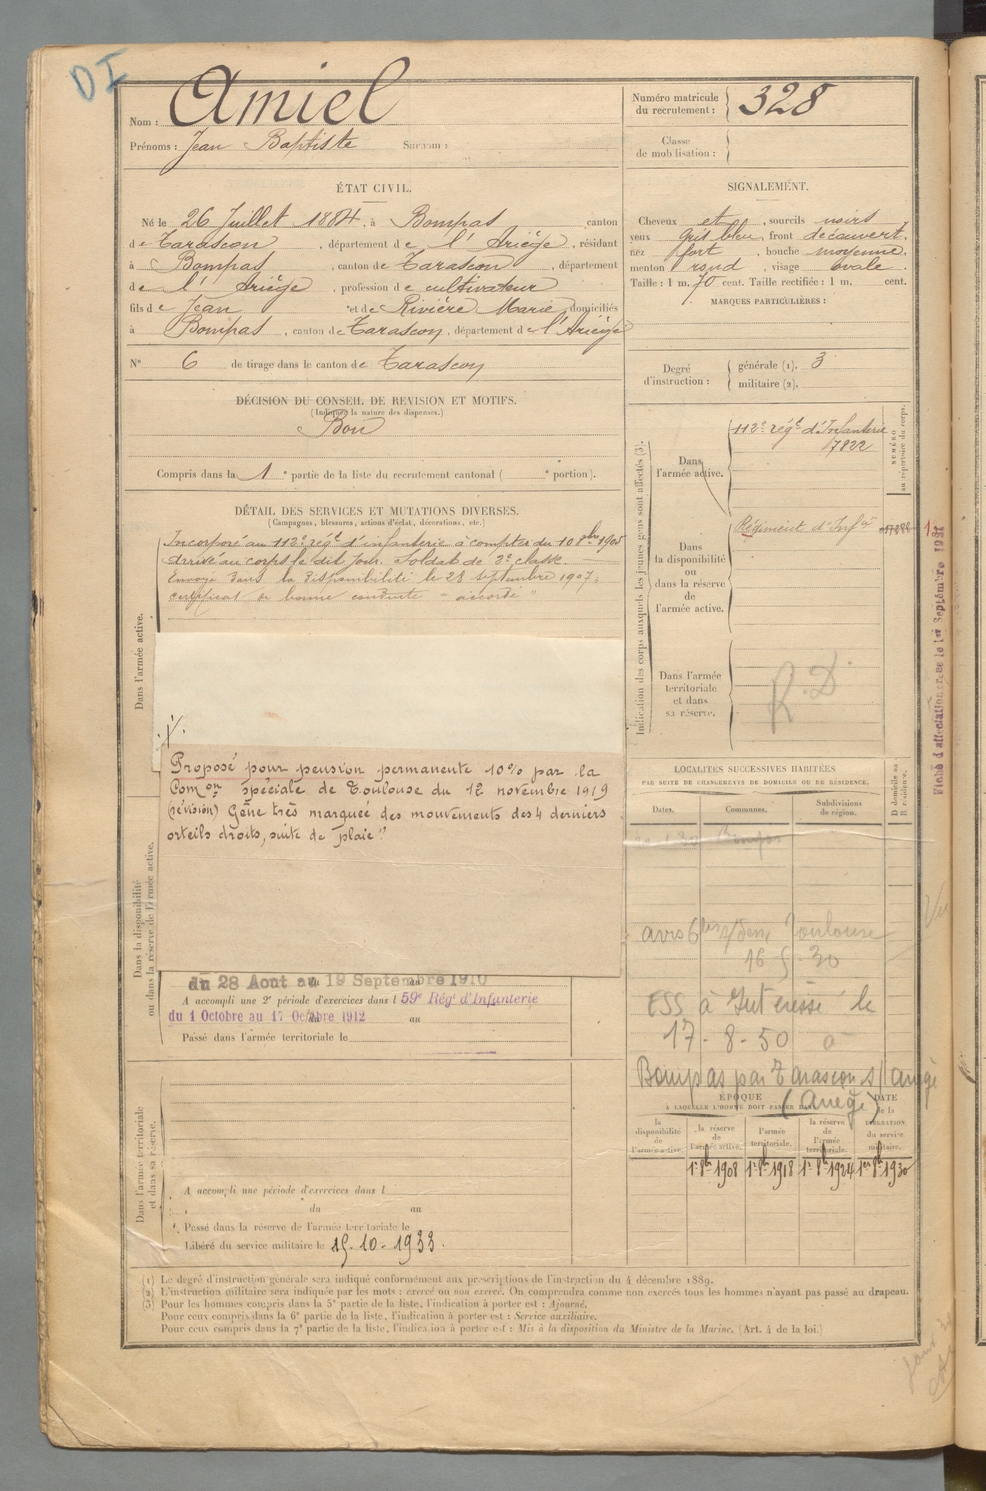 DI
Nom : Amiel
Prénoms : Jean Baptiste Surnom :
Numéro matricule
du recrutement : 328
Classe
de mobilisation :
ÉTAT CIVIL.
Né le 26 Juillet 1884, à Bompas canton
de Tarascon, département de l'Ariège, résidant
à Bompas, canton de Tarascon, département
de l'Ariège, profession de cultivateur
fils de Jean et de Rivière Marie domiciliés
à Bompas, canton de Tarascon, département de l'Ariège
N° 6 de tirage dans le canton de Tarascon
SIGNALEMENT.
Cheveux et, sourcils noirs
yeux gris bleu, front découvert,
nez fort, bouche moyenne,
menton rond, visage ovale.
Taille : 1 m. 70 cent. Taille rectifiée : 1 m. cent.
MARQUES PARTICULIÈRES :
Degré
d'instruction :
générale (1). 3
militaire (2).
DÉCISION DU CONSEIL DE REVISION ET MOTIFS.
(Indiquer la nature des dispenses.)
Bon
Compris dans la 1e partie de la liste du recrutement cantonal ( e portion).
DÉTAIL DES SERVICES ET MUTATIONS DIVERSES.
(Campagnes, blessures, actions d'éclat, décorations, etc.)
Dans l'armée active.
Incorporé au 112e régt d'infanterie à compter du 10 8bre 1905
Arrivé au corps le dit jour. Soldat de 2e classe.
Envoyé dans la disponibilité le 28 septembre 1907;
certificat de bonne conduite "accordé"
Dans la disponibilité
ou dans la réserve de l'armée active.
Proposé pour pension permanente 10% par la
Comon spéciale de Toulouse du 12 novembre 1919
(révision) Gêne très marquée des mouvements des 4 derniers
orteils droits, suite de plaie"
du 28 Aout au 19 Septembre 1910
A accompli une 2e période d'exercices dans l 59e Régt d'Infanterie
du 1 Octobre au 17 Octobre 1912 au
Passé dans l'armée territoriale le
Dans l'armée territoriale
et dans sa réserve.
A accompli une période d'exercices dans l
du au
Passé dans la réserve de l'armée territoriale le
Libéré du service militaire le 15-10-1933.
Indication des corps auxquels les jeunes gens sont affectés (3).
Dans
l'armée active.
112e régt d'Infanterie
7822
NUMÉRO
au répertoire du corps.
Dans
la disponibilité
ou
dans la réserve
de
l'armée active.
Régiment d'Infie
Dans l'armée
territoriale
et dans
sa réserve.
R.D.
Fiche d'affectation créée le 1er Septembre 1931
LOCALITÉS SUCCESSIVES HABITÉES
PAR SUITE DE CHANGEMENTS DE DOMICILE OU DE RÉSIDENCE.
Dates. Communes. Subdivisions
de région.
D domicile ou
R résidence.
Bompas
avis Toulouse
16 5-30
ESS à Intéressé le
17-8-50 à
Bompas par Tarascon s/ariège
(Ariège)
ÉPOQUE
À LAQUELLE L'HOMME DOIT PASSER DANS
DATE
de la
LIBÉRATION
du service
militaire.
la
disponibilité
de
l'armée active.
la réserve
de
l'armée active.
l'armée
territoriale.
la réserve
de
l'armée
territoriale.
1er 8bre 1908 1er 8bre 1918 1er 8bre 1924 1er 8bre 1930
(1) Le degré d'instruction générale sera indiqué conformément aux prescriptions de l'instruction du 4 décembre 1889.
(2) L'instruction militaire sera indiquée par les mots : exercé ou non exercé. On comprendra comme non exercés tous les hommes n'ayant pas passé au drapeau.
(3) Pour les hommes compris dans la 5e partie de la liste, l'indication à porter est : Ajourné.
Pour ceux compris dans la 6e partie de la liste, l'indication à porter est : Service auxiliaire.
Pour ceux compris dans la 7e partie de la liste, l'indication à porter est : Mis à la disposition du Ministre de la Marine. (Art. 4 de la loi.)